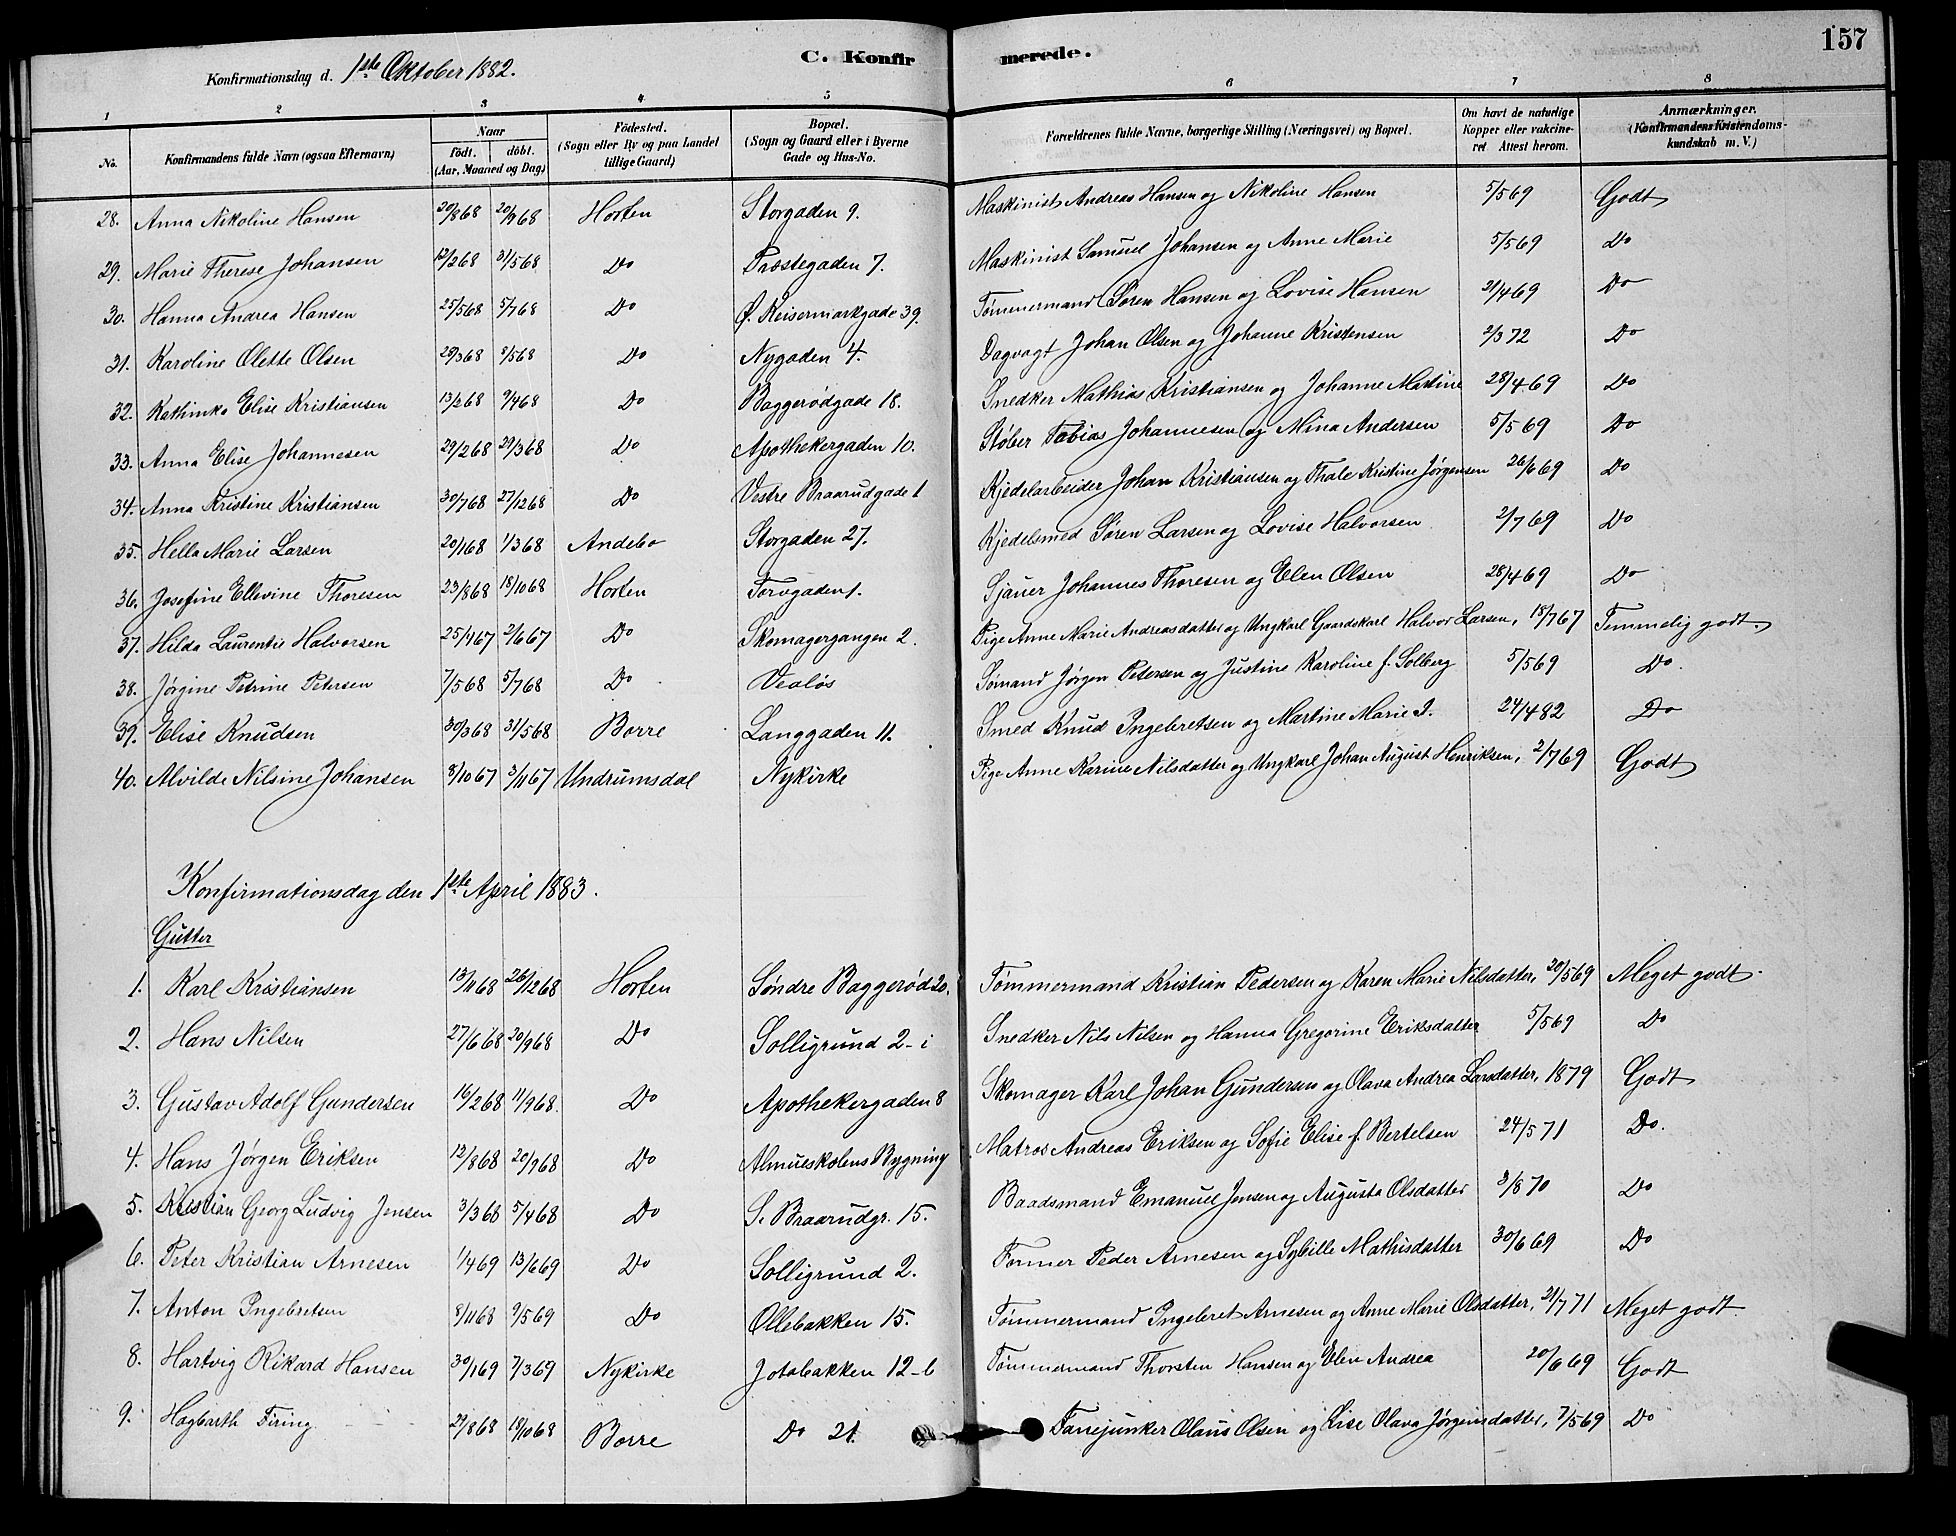 157
Konfirmationsdag d. 1ste Oktober 1882.
C. Konfirmerede.
1 2 3 4 5 6 7 8
No. Konfirmandens fulde Navn (ogsaa Efternavn) Naar födt. döbt. (Aar, Maaned og Dag) Födested. (Sogn eller By og paa Landet tillige Gaard) Bopæl. (Sogn og Gaard eller i Byerne Gade og Hus-No. Forældrenes fulde Navne, borgerlige Stilling (Næringsvei) og Bopæl. Om havt de naturlige Kopper eller vakcineret Attest herom. Anmærkninger. (Konfirmandens Kristendomskundskab m. V.)
28. Anna Nikoline Hansen 20/8 68 20/9 68 Horten Storgaden 9. Maskinist Andreas Hansen og Nikoline Hansen 5/5 69 Godt
29. Marie Therese Johansen 12/2 68 31/5 68 Do Præstegaden 7. Maskinist Samuel Johansen og Anne Marie 5/5 69 Do
30. Hanna Andrea Hansen 25/5 68 5/7 68 Do Ø. Keisermarkgade 39. Tømmermand Søren Hansen og Lovise Hansen 21/4 69 Do
31. Karoline Olette Olsen 29/3 68 /5 68 Do Nygaden 4. Dagvagt Johan Olsen og Johanne Kristensen 2/3 72 Do
32. Kathinka Elise Kristiansen 13/2 68 9/4 68 Do Baggerødgade 18. Snedker Mathias Kristiansen og Johanne Martine 28/4 69 Do
33. Anna Elise Johannesen 29/2 68 29/3 68 Do Apothekergaden 10. Støber Tobias Johannesen og Mina Andersen 5/5 69 Do
34. Anna Kristine Kristiansen 30/7 68 27/12 68 Do Vestre Braarudgade 1 Kjedelarbeider Johan Kristiansen og Thale Kristine Jørgensen 26/6 69 Do
35. Hella Marie Larsen 20/1 68 1/3 68 Andebo Storgaden 27. Kjedelsmed Søren Larsen og Lovise Halvorsen 2/7 69 Do
36. Josefine Ellevine Thoresen 23/8 68 18/10 68 Horten Torvgaden 1. Sjauer Johannes Thoresen og Elen Olsen 28/4 69 Do
37. Hilda Laurentie Halvorsen 25/4 67 2/6 67 Do Skomagergangen 2. Pige Anne Marie Andreasdatter og Ungkarl Gaardskarl Halvor Larsen, 18/7 67 Temmelig godt.
38. Jørgine Petrine Petersen 7/5 68 5/7 68 Do Vealøs Sømand Jørgen Petersen og Justine Karoline f. Solberg 5/5 69 Do.
39. Elise Knudsen 30/3 68 31/5 68 Borre Langgaden 11. Smed Knud Ingebretsen og Martine Marie I. 24/4 82 Do
40. Alvilde Nilsine Johansen 8/10 67 3/11 67 Undrumsdal Nykirke Pige Anne Karine Nilsdatter og Ungkarl Johan August Henriksen, 2/7 69 Godt
Konfirmationsdag den 1ste April 1883.
Gutter
1. Karl Kristiansen 13/11 68 26/12 68 Horten Søndre Baggerød 20. Tømmermand Kristian Pedersen og Karen Marie Nilsdatter, 20/5 69 Meget godt.
2. Hans Nilsen 27/6 68 20/9 68 Do Solligrund 2-i Snedker Nils Nilsen og Hanna Gregorine Eriksdatter 5/5 69 Do
3. Gustav Adolf Gundersen 16/2 68 11/9 68. Do Apothekergaden 8 Skomager Karl Johan Gundersen og Olava Andrea Larsdatter, 1879 Godt
4. Hans Jørgen Eriksen 12/8 68 20/9 68 Do Almueskolens Bygning Matros Andreas Eriksen og Sofie Elise f. Bertelsen 24/5 71 Do.
5. Kristian Georg Ludvig Jensen 3/3 68 5/4 68 Do S. Braarudgr. 15. Baadsmand Emanuel Jensen og Augusta Olsdatter 3/8 70 Do
6. Peter Kristian Arnesen 1/4 69 13/6 69 Do Solligrund 2. Former Peder Arnesen og Sybille Mathisdatter 30/6 69 Do
7. Anton Ingebretsen 8/11 68 9/5 69 Do Ollebakken 15. Tømmermand Ingebret Arnesen og Anne Marie Olsdatter, 21/7 71 Meget godt
8. Hartvig Rikard Hansen 30/1 69 7/3 69 Nykirke Jotabakken 12-b Tømmermand Thorsten Hansen og Elen Andrea 20/6 69 Godt
9. Hagbarth Firing 29/8 68 18/10 68 Borre Do 21. Fanejunker Olaus Olsen og Lise Olava Jørgensdatter, 7/5 69 Do